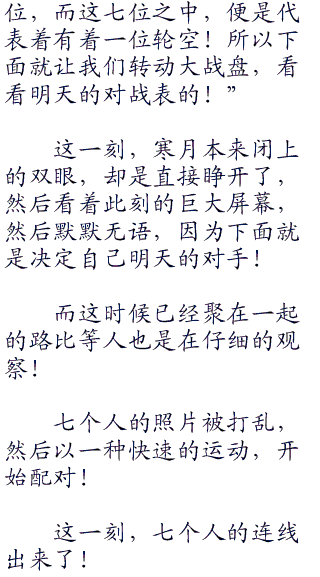 位，而这七位之中，便是代
表着有着一位轮空！所以下
面就让我们转动大战盘，看
看明天的对战表的！”
这一刻，寒月本来闭上
的双眼，却是直接睁开了，
然后看着此刻的巨大屏幕，
然后默默无语，因为下面就
是决定自己明天的对手！
而这时候已经聚在一起
的路比等人也是在仔细的观
察！
七个人的照片被打乱，
然后以一种快速的运动，开
始配对！
这一刻，七个人的连线
出来了！